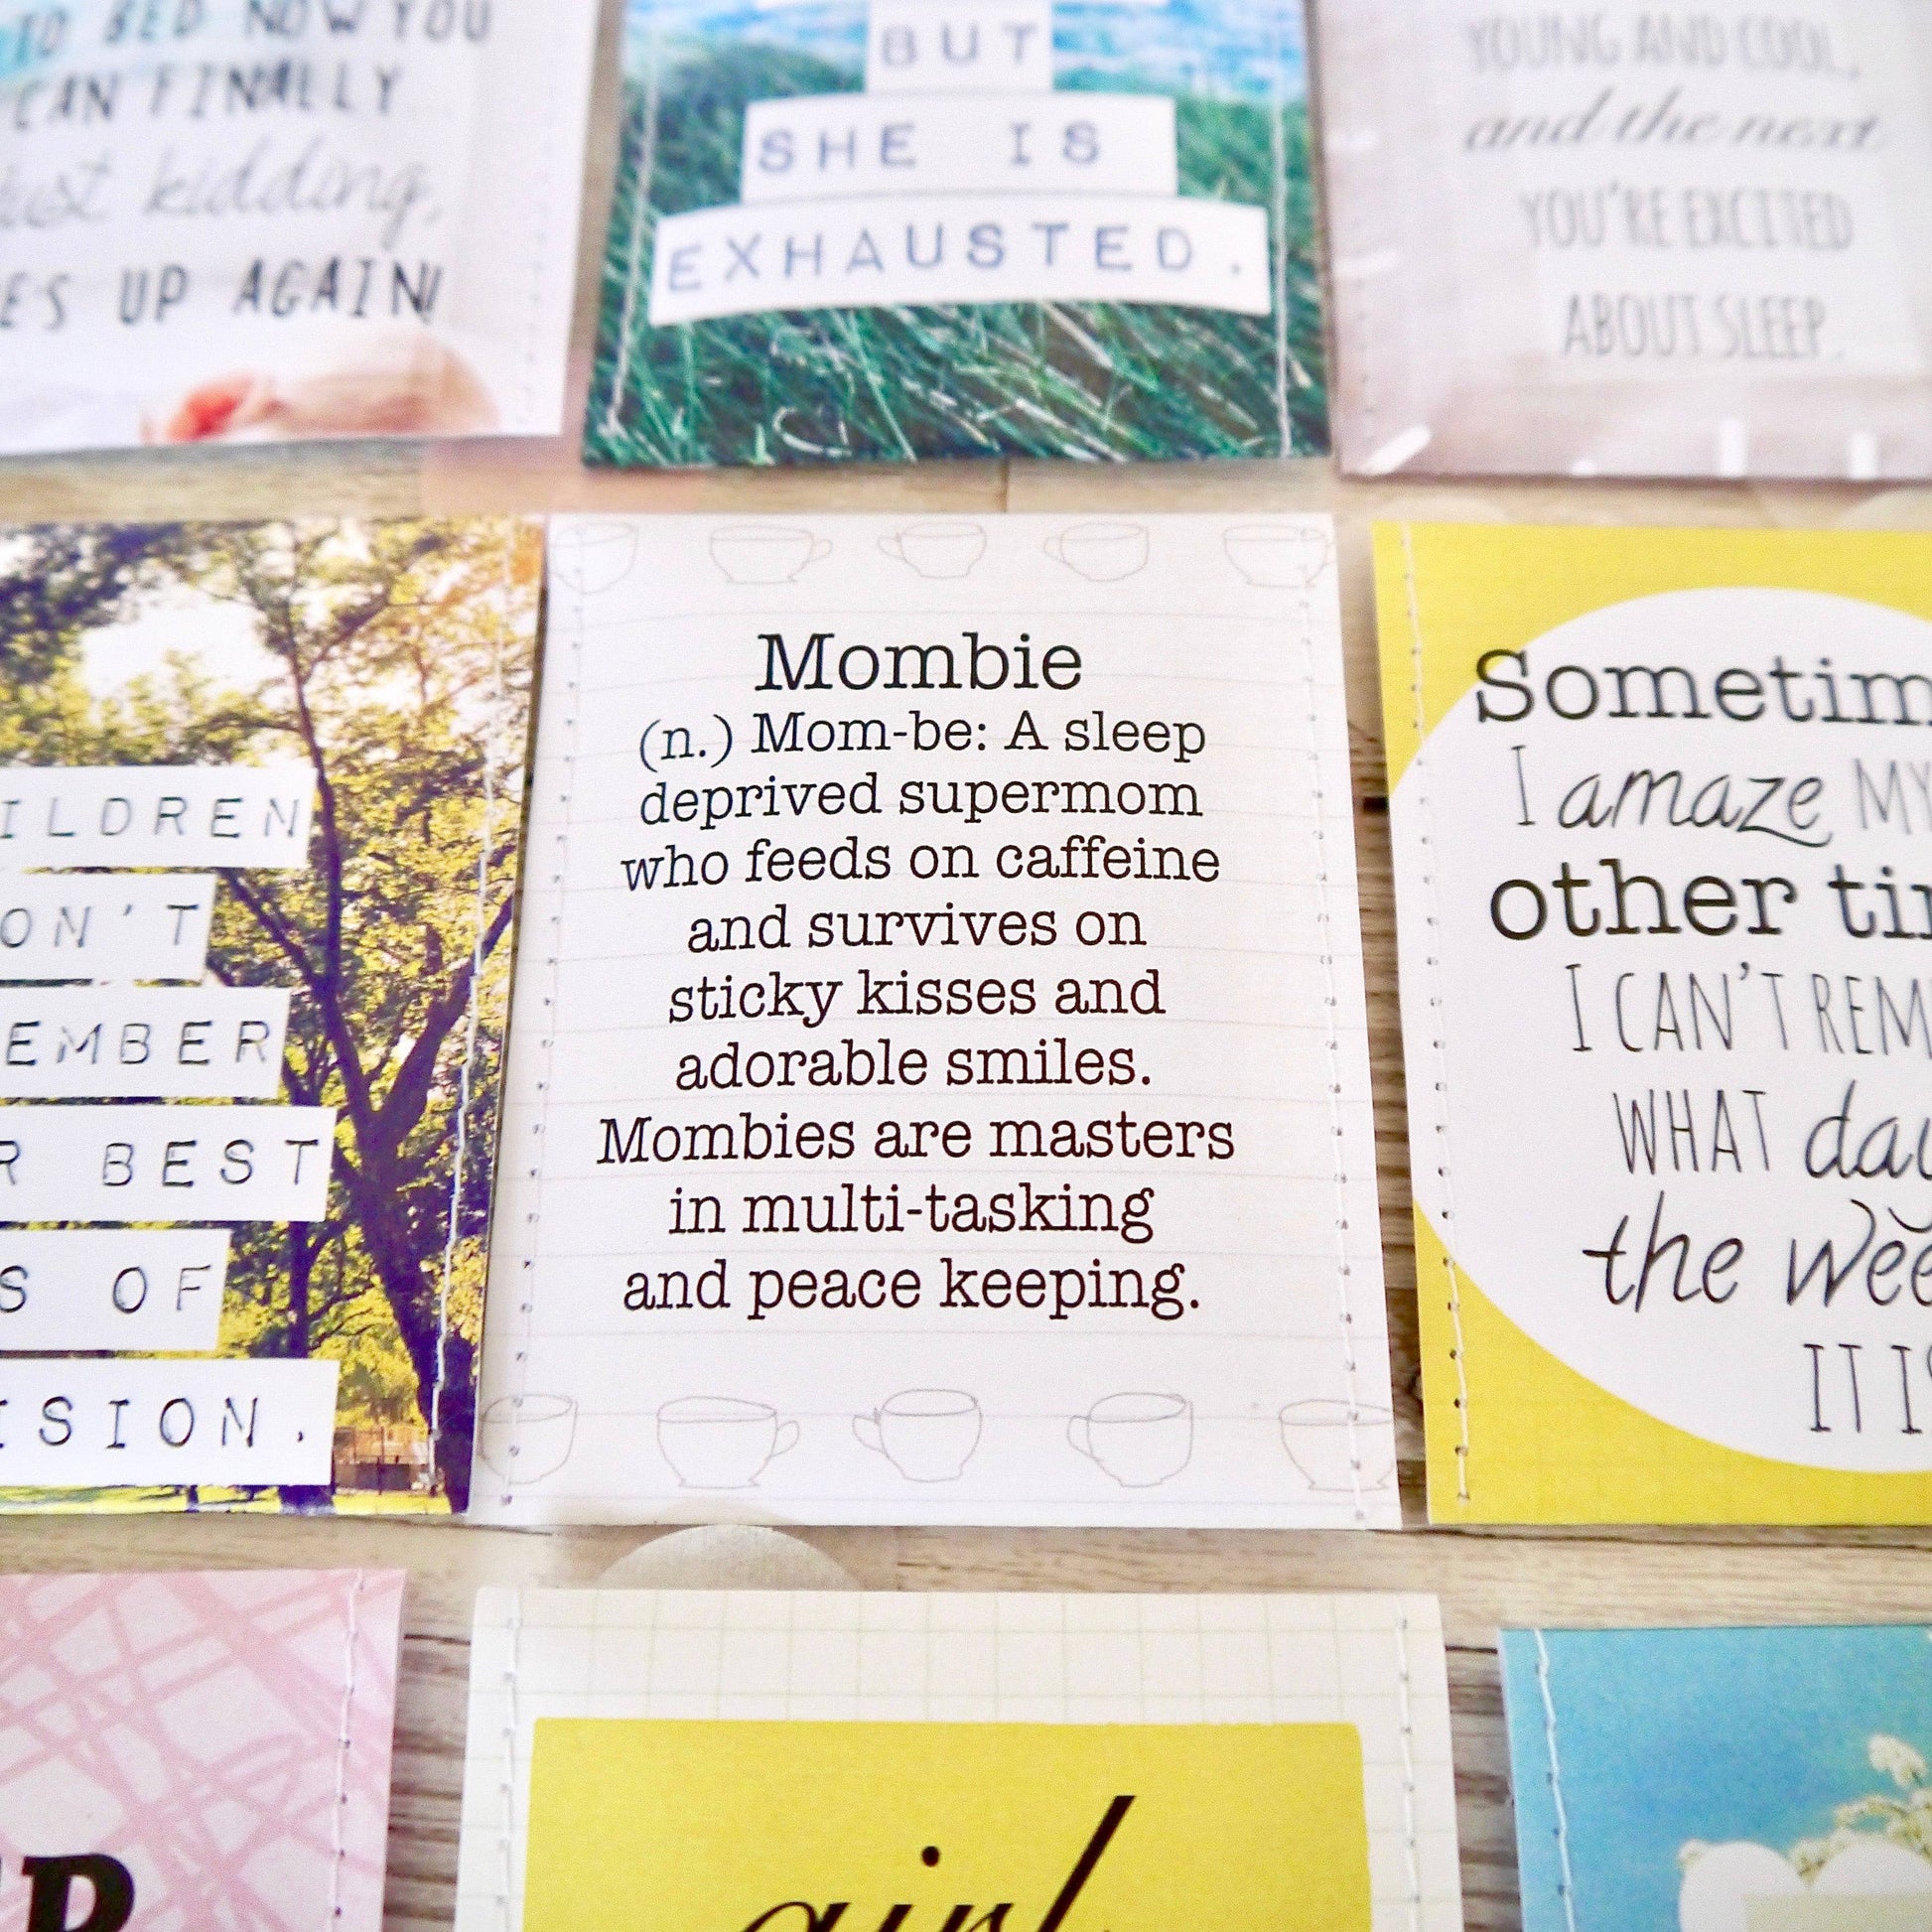 TO BED NOW YOU
CAN FINALLY
kidding,
UP AGAIN!
BUT
SHE IS
EXHAUSTED.
YOUNG AND COOL,
and the next
YOU'RE EXCITED
ABOUT SLEEP.
ON'T
BEST
OF
Mombie
(n.) Mom-be: A sleep
deprived supermom
who feeds on caffeine
and survives on
sticky kisses and
adorable smiles.
Mombies are masters
in multi-tasking
and peace keeping.
I amaze MY
other
I CAN'T
WHAT
the
IT
girl